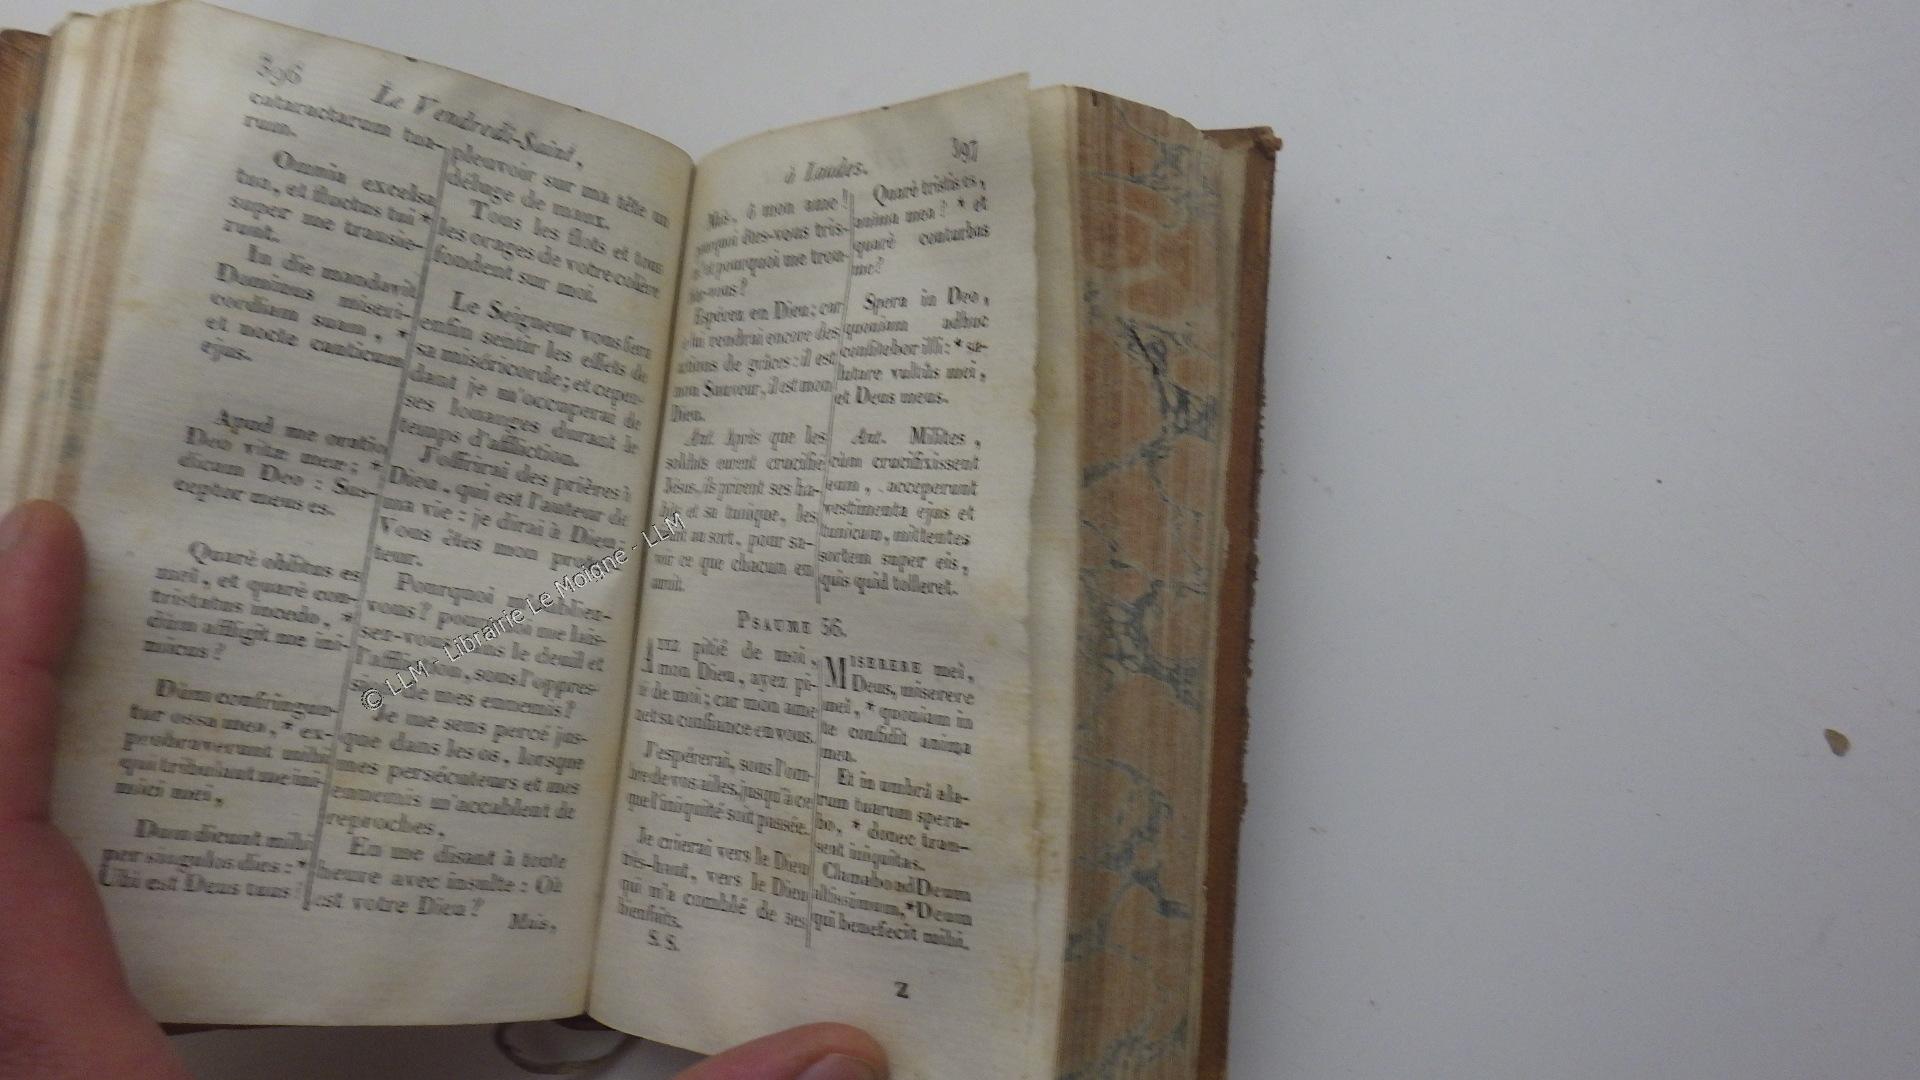 396
Le Vendredi-Saint,
cataractarum tua-
rum.
Omnia excelsa
tua, et fluctus tui *
super me transie-
runt.
In die mandavit
Dominus miseri-
cordiam suam, *
et nocte canticum
ejus.
Apud me oratio
Deo vitæ meæ; *
dicam Deo : Sus-
ceptor meus es.
Quarè oblitus es
mei, et quarè con-
tristatus incedo, *
dùm affligit me ini-
micus ?
Dùm confringun-
tur ossa mea, * ex-
probraverunt mihi
qui tribulant me ini-
mici mei,
Dum dicunt mihi
per singulos dies : *
Ubi est Deus tuus ?
pleuvoir sur ma tête un
déluge de maux.
Tous les flots et tous
les orages de votre colère
fondent sur moi.
Le Seigneur vous fera
enfin sentir les effets de
sa miséricorde; et cepen-
dant je m'occuperai de
ses louanges durant le
temps d'affliction.
J'offrirai des prières à
Dieu, qui est l'auteur de
ma vie : je dirai à Dieu :
Vous êtes mon protec-
teur.
Pourquoi m'oubliez-
vous? pourquoi me lais-
sez-vous dans le deuil et
l'affliction, sous l'oppres-
sion de mes ennemis ?
Je me sens percé jus-
que dans les os, lorsque
mes persécuteurs et mes
ennemis m'accablent de
reproches,
En me disant à toute
heure avec insulte : Où
est votre Dieu ?
Mais,
397
à Laudes.
Mais, ô mon ame !
pourquoi êtes-vous tris-
te et pourquoi me trou-
blez-vous ?
Espérez en Dieu; car
je lui rendrai encore des
actions de grâces : il est
mon Sauveur, il est mon
Dieu.
Ant. Après que les
soldats eurent crucifié
Jésus, ils prirent ses ha-
bits et sa tunique, les
au sort, pour sa-
voir ce que chacun en
auroit.
Quarè tristis es,
anima mea ! * et
quarè conturbas
me?
Spera in Deo,
quoniam adhuc
confitebor illi : * sa-
lutare vultûs mei,
et Deus meus.
Ant. Milites,
cùm crucifixissent
eum, acceperunt
vestimenta ejus et
tunicam, mittentes
sortem super eis,
quis quid tolleret.
PSAUME 56.
AYEZ pitié de moi,
mon Dieu, ayez pi-
tié de moi; car mon ame
met sa confiance en vous.
J'espérerai, sous l'om-
bre de vos ailes, jusqu'à ce
que l'iniquité soit passée.
Je crierai vers le Dieu
très-haut, vers le Dieu
qui m'a comblé de ses
bienfaits.
S. S.
MISERERE mei,
Deus, miserere
mei, * quoniam in
te confidit anima
mea.
Et in umbrâ ala-
rum tuarum spera-
bo, * donec tran-
seat iniquitas.
Clamabo ad Deum
altissimum, * Deum
qui benefecit mihi.
Z
© LLM - Librairie Le Moigne - LLM